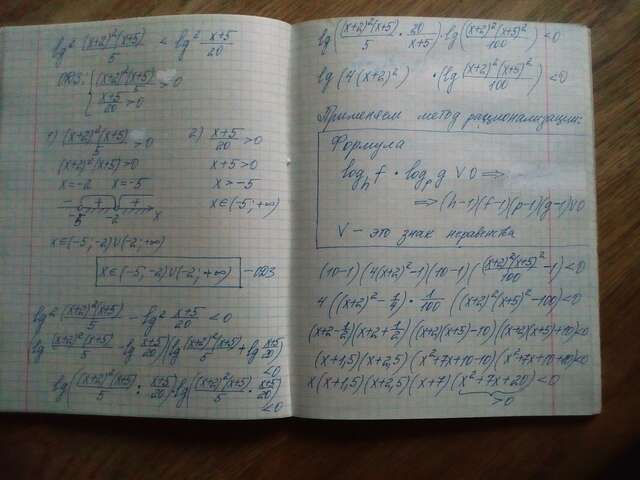 lg² (x+2)²(x+5)/5 < lg² (x+5)/20
ОДЗ: { (x+2)²(x+5)/5 > 0
(x+5)/20 > 0
1) (x+2)²(x+5)/5 > 0
(x+2)²(x+5)>0
x=-2 x=-5
- + +
-5 -2 x
x∈(-5;-2)∪(-2;+∞)
2) (x+5)/20 > 0
x+5>0
x>-5
x∈(-5;+∞)
x∈(-5;-2)∪(-2;+∞) - ОДЗ
lg² (x+2)²(x+5)/5 - lg² (x+5)/20 < 0
(lg (x+2)²(x+5)/5 - lg (x+5)/20)(lg (x+2)²(x+5)/5 + lg (x+5)/20) < 0
lg((x+2)²(x+5)/5 : (x+5)/20)·lg((x+2)²(x+5)/5 · (x+5)/20) < 0
lg((x+2)²(x+5)/5 · 20/(x+5))·lg((x+2)²(x+5)²/100) < 0
lg(4(x+2)²)·(lg (x+2)²(x+5)²/100) < 0
Применяем метод рационализации:
Формула
log_h f · log_p g ∨ 0 ⇒
⇒ (h-1)(f-1)(p-1)(g-1)∨0
∨ - это знак неравенства
(10-1)(4(x+2)²-1)(10-1)((x+2)²(x+5)²/100 -1)<0
4((x+2)²-1/4)·1/100((x+2)²(x+5)²-100)<0
(x+2-1/2)(x+2+1/2)((x+2)(x+5)-10)((x+2)(x+5)+10)<0
(x+1,5)(x+2,5)(x²+7x+10-10)(x²+7x+10+10)<0
x(x+1,5)(x+2,5)(x+7)(x²+7x+20)<0
>0